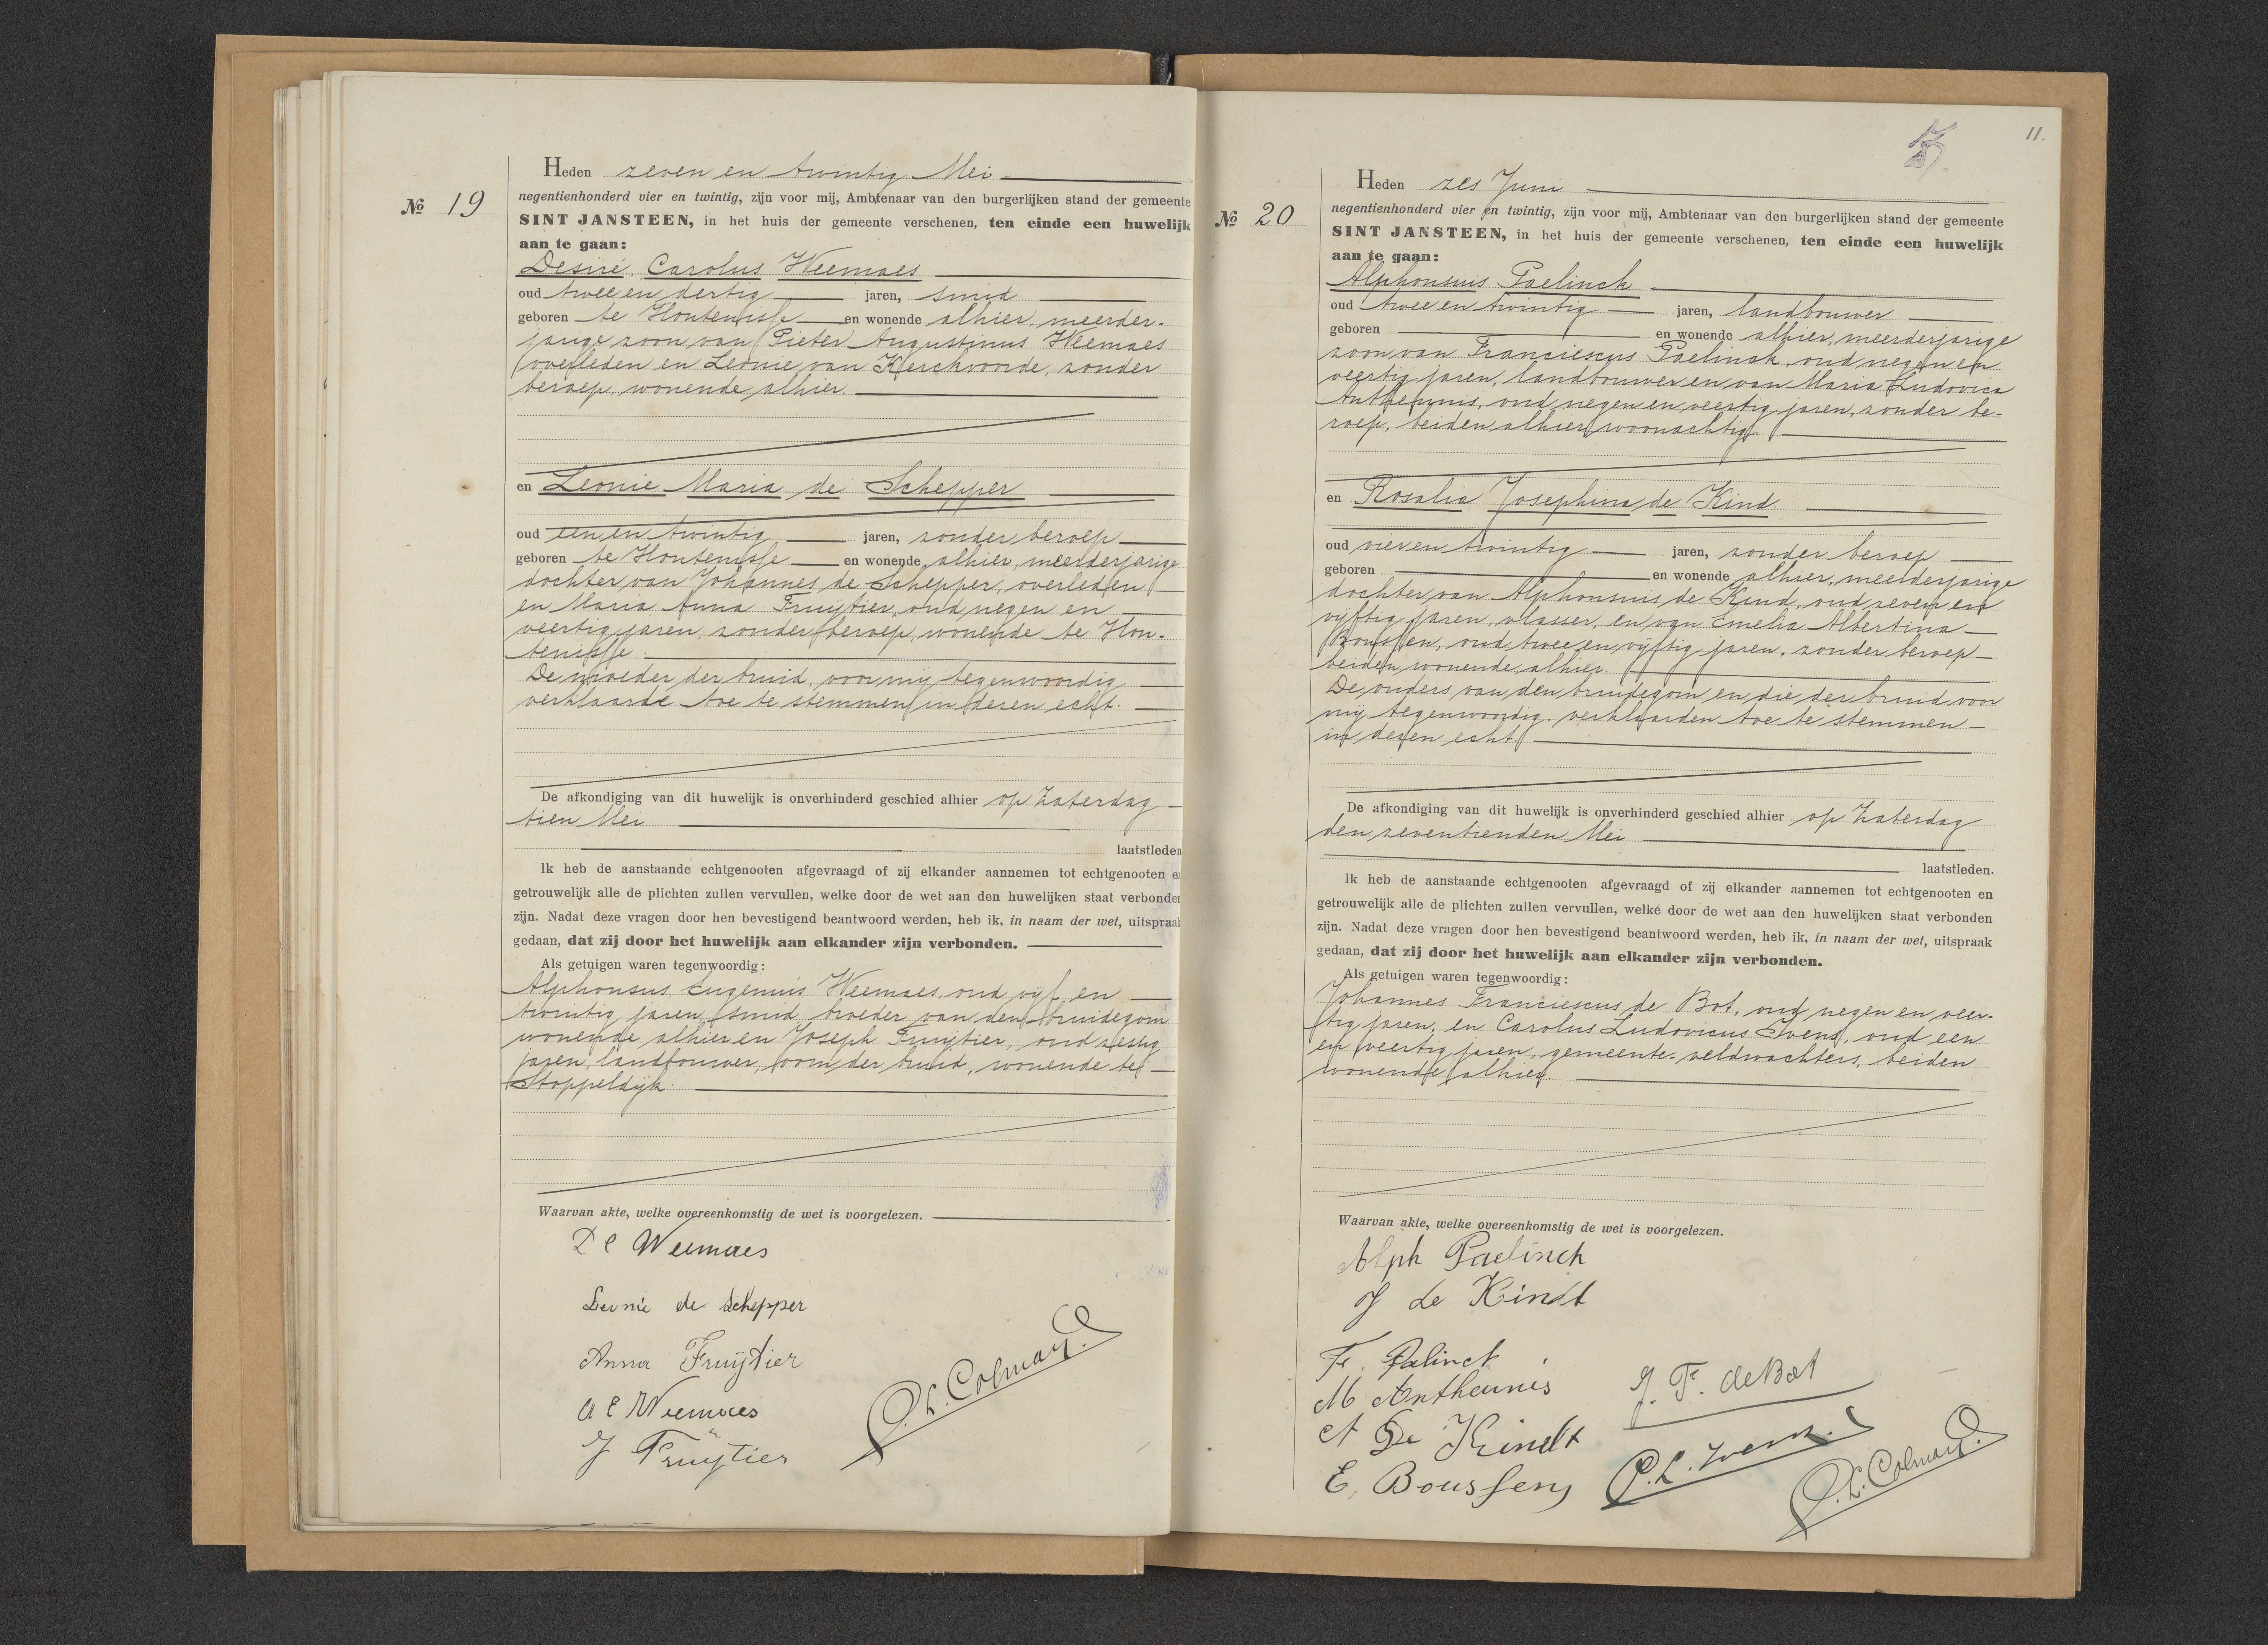 Heden zeven en twintig Mei
negentienhonderd vier en twintig, zijn voor mij, Ambtenaar van den burgerlijken stand der gemeente
No 19
SINT JANSTEEN, in het huis der gemeente verschenen, ten einde een huwelijk
aan te gaan:
Desiré Carolus Weemaes
oud twee en dertig jaren, smid
geboren te Hontenisse en wonende alhier, meerder-
jarige zoon van Pieter Augustinus Weemaes
overleden en Leonie van Kerckvoorde, zonder
beroep, wonende alhier.
en Leonie Maria de Schepper
oud een en twintig jaren, zonder beroep
geboren te Hontenisse en wonende alhier, meerderjarige
dochter van Johannes de Schepper, overleden
en Maria Anna Fruijtier, oud negen en
veertig jaren, zonder beroep, wonende te Hon-
tenisse.
De moeder der bruid, voor mij tegenwoordig
verklaarde toe te stemmen in dezen echt.
De afkondiging van dit huwelijk is onverhinderd geschied alhier op Zaterdag
tien Mei
laatstleden
Ik heb de aanstaande echtgenooten afgevraagd of zij elkander aannemen tot echtgenooten en
getrouwelijk alle de plichten zullen vervullen, welke door de wet aan den huwelijken staat verbonden
zijn. Nadat deze vragen door hen bevestigend beantwoord werden, heb ik, in naam der wet, uitspraak
gedaan, dat zij door het huwelijk aan elkander zijn verbonden.
Als getuigen waren tegenwoordig:
Alphonsus Eugenius Weemaes, oud vijf en
twintig jaren, smid, broeder van den bruidegom
wonende alhier en Joseph Fruijtier, oud zestig
jaren, landbouwer, oom der bruid, wonende te
Stoppeldijk.
Waarvan akte, welke overeenkomstig de wet is voorgelezen.
D C Weemaes
Leonie de Schepper
Anna Fruijtier
A E Weemaes
J Fruijtier
P. L. Colmans.
11.
Heden zes Juni
negentienhonderd vier en twintig, zijn voor mij, Ambtenaar van den burgerlijken stand der gemeente
No 20
SINT JANSTEEN, in het huis der gemeente verschenen, ten einde een huwelijk
aan te gaan:
Alphonsus Paelinck
oud twee en twintig jaren, landbouwer
geboren en wonende alhier, meerderjarige
zoon van Franciescus Paelinck, oud negen en
veertig jaren, landbouwer en van Maria Ludovica
Antheunis, oud negen en veertig jaren, zonder be-
roep, beiden alhier woonachtig.
en Rosalia Josephina de Kind
oud vier en twintig jaren, zonder beroep
geboren en wonende alhier, meerderjarige
dochter van Alphonsus de Kind, oud zeven en
vijftig jaren, vlasser, en van Emelia Albertina
Boussen, oud twee en vijftig jaren, zonder beroep
beiden wonende alhier.
De ouders van den bruidegom en die der bruid voor
mij tegenwoordig, verklaarden toe te stemmen
in dezen echt.
De afkondiging van dit huwelijk is onverhinderd geschied alhier op Zaterdag
den zeventienden Mei
laatstleden.
Ik heb de aanstaande echtgenooten afgevraagd of zij elkander aannemen tot echtgenooten en
getrouwelijk alle de plichten zullen vervullen, welke door de wet aan den huwelijken staat verbonden
zijn. Nadat deze vragen door hen bevestigend beantwoord werden, heb ik, in naam der wet, uitspraak
gedaan, dat zij door het huwelijk aan elkander zijn verbonden.
Als getuigen waren tegenwoordig:
Johannes Franciescus de Bot, oud negen en veer-
tig jaren, en Carolus Ludovicus Ivens, oud een
en veertig jaren, gemeente-veldwachters, beiden
wonende alhier.
Waarvan akte, welke overeenkomstig de wet is voorgelezen.
Alph Paelinck
J de Kindt
Fr. Palinck
M Antheunis
J. F. de Bot
A De Kindt
C. L. Ivens.
E, Boussen
P. L. Colmans.